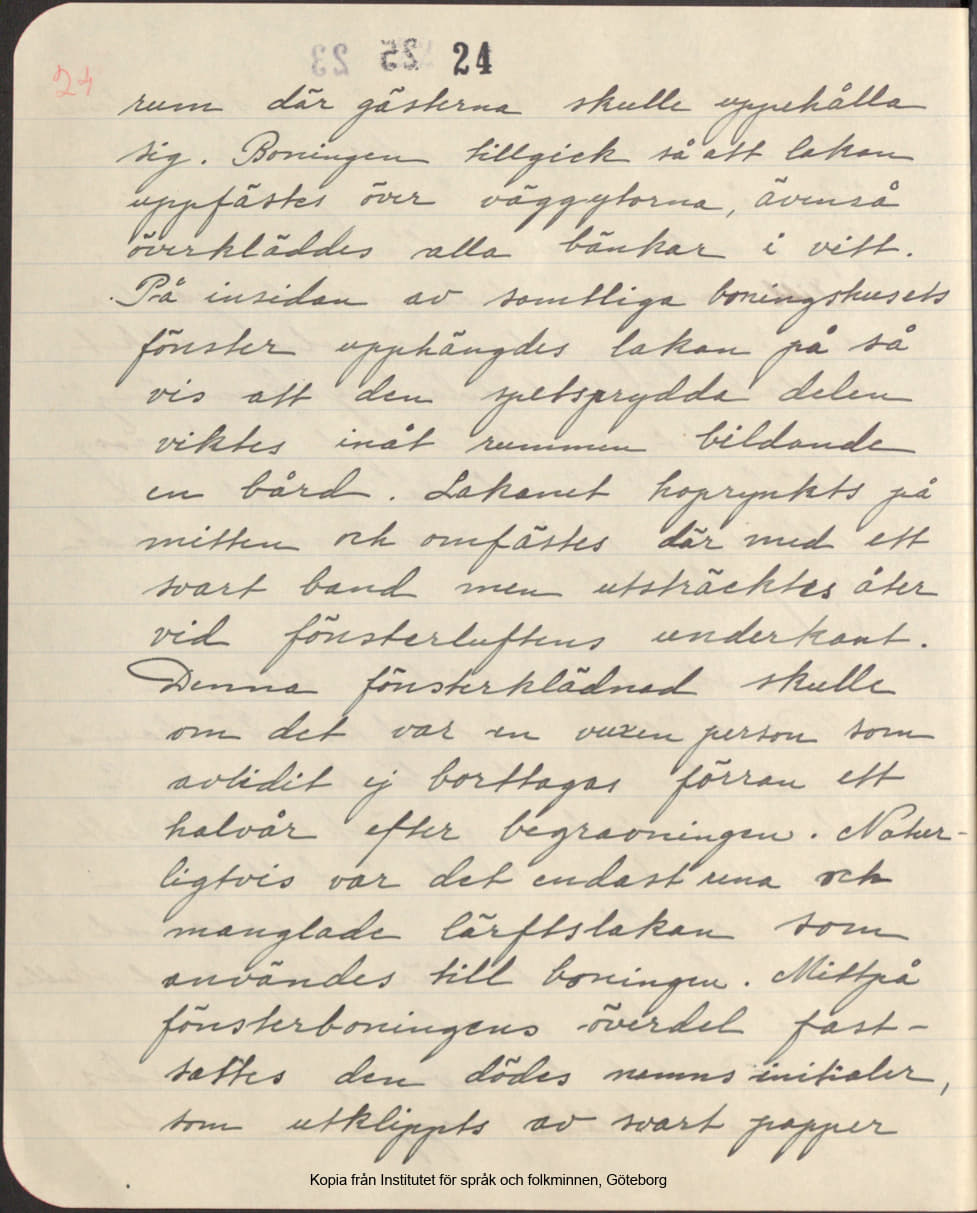 23 25 24
24
rum där gästerna skulle uppehålla
sig. Boningen tillgick så att lakan
uppfästes över väggytorna, ävenså
överkläddes alla bänkar i vitt.
På insidan av samtliga boningshusets
fönster upphängdes lakan på så
vis att den spetsprydda delen
viktes inåt rummen bildande
en bård. Lakanet hoprynkts på
mitten och omfästes där med ett
svart band men utsträcktes åter
vid fönsterluftens underkant.
Denna fönsterklädnad skulle
om det var en vuxen person som
avlidit ej borttagas förran ett
halvår efter begravningen. Natur-
ligtvis var det endast rena och
manglade lärftslakan som
användes till boningen. Mittpå
fönsterboningens överdel fast-
sattes den dödes namns initialer,
som utklippts av svart papper
Kopia från Institutet för språk och folkminnen, Göteborg